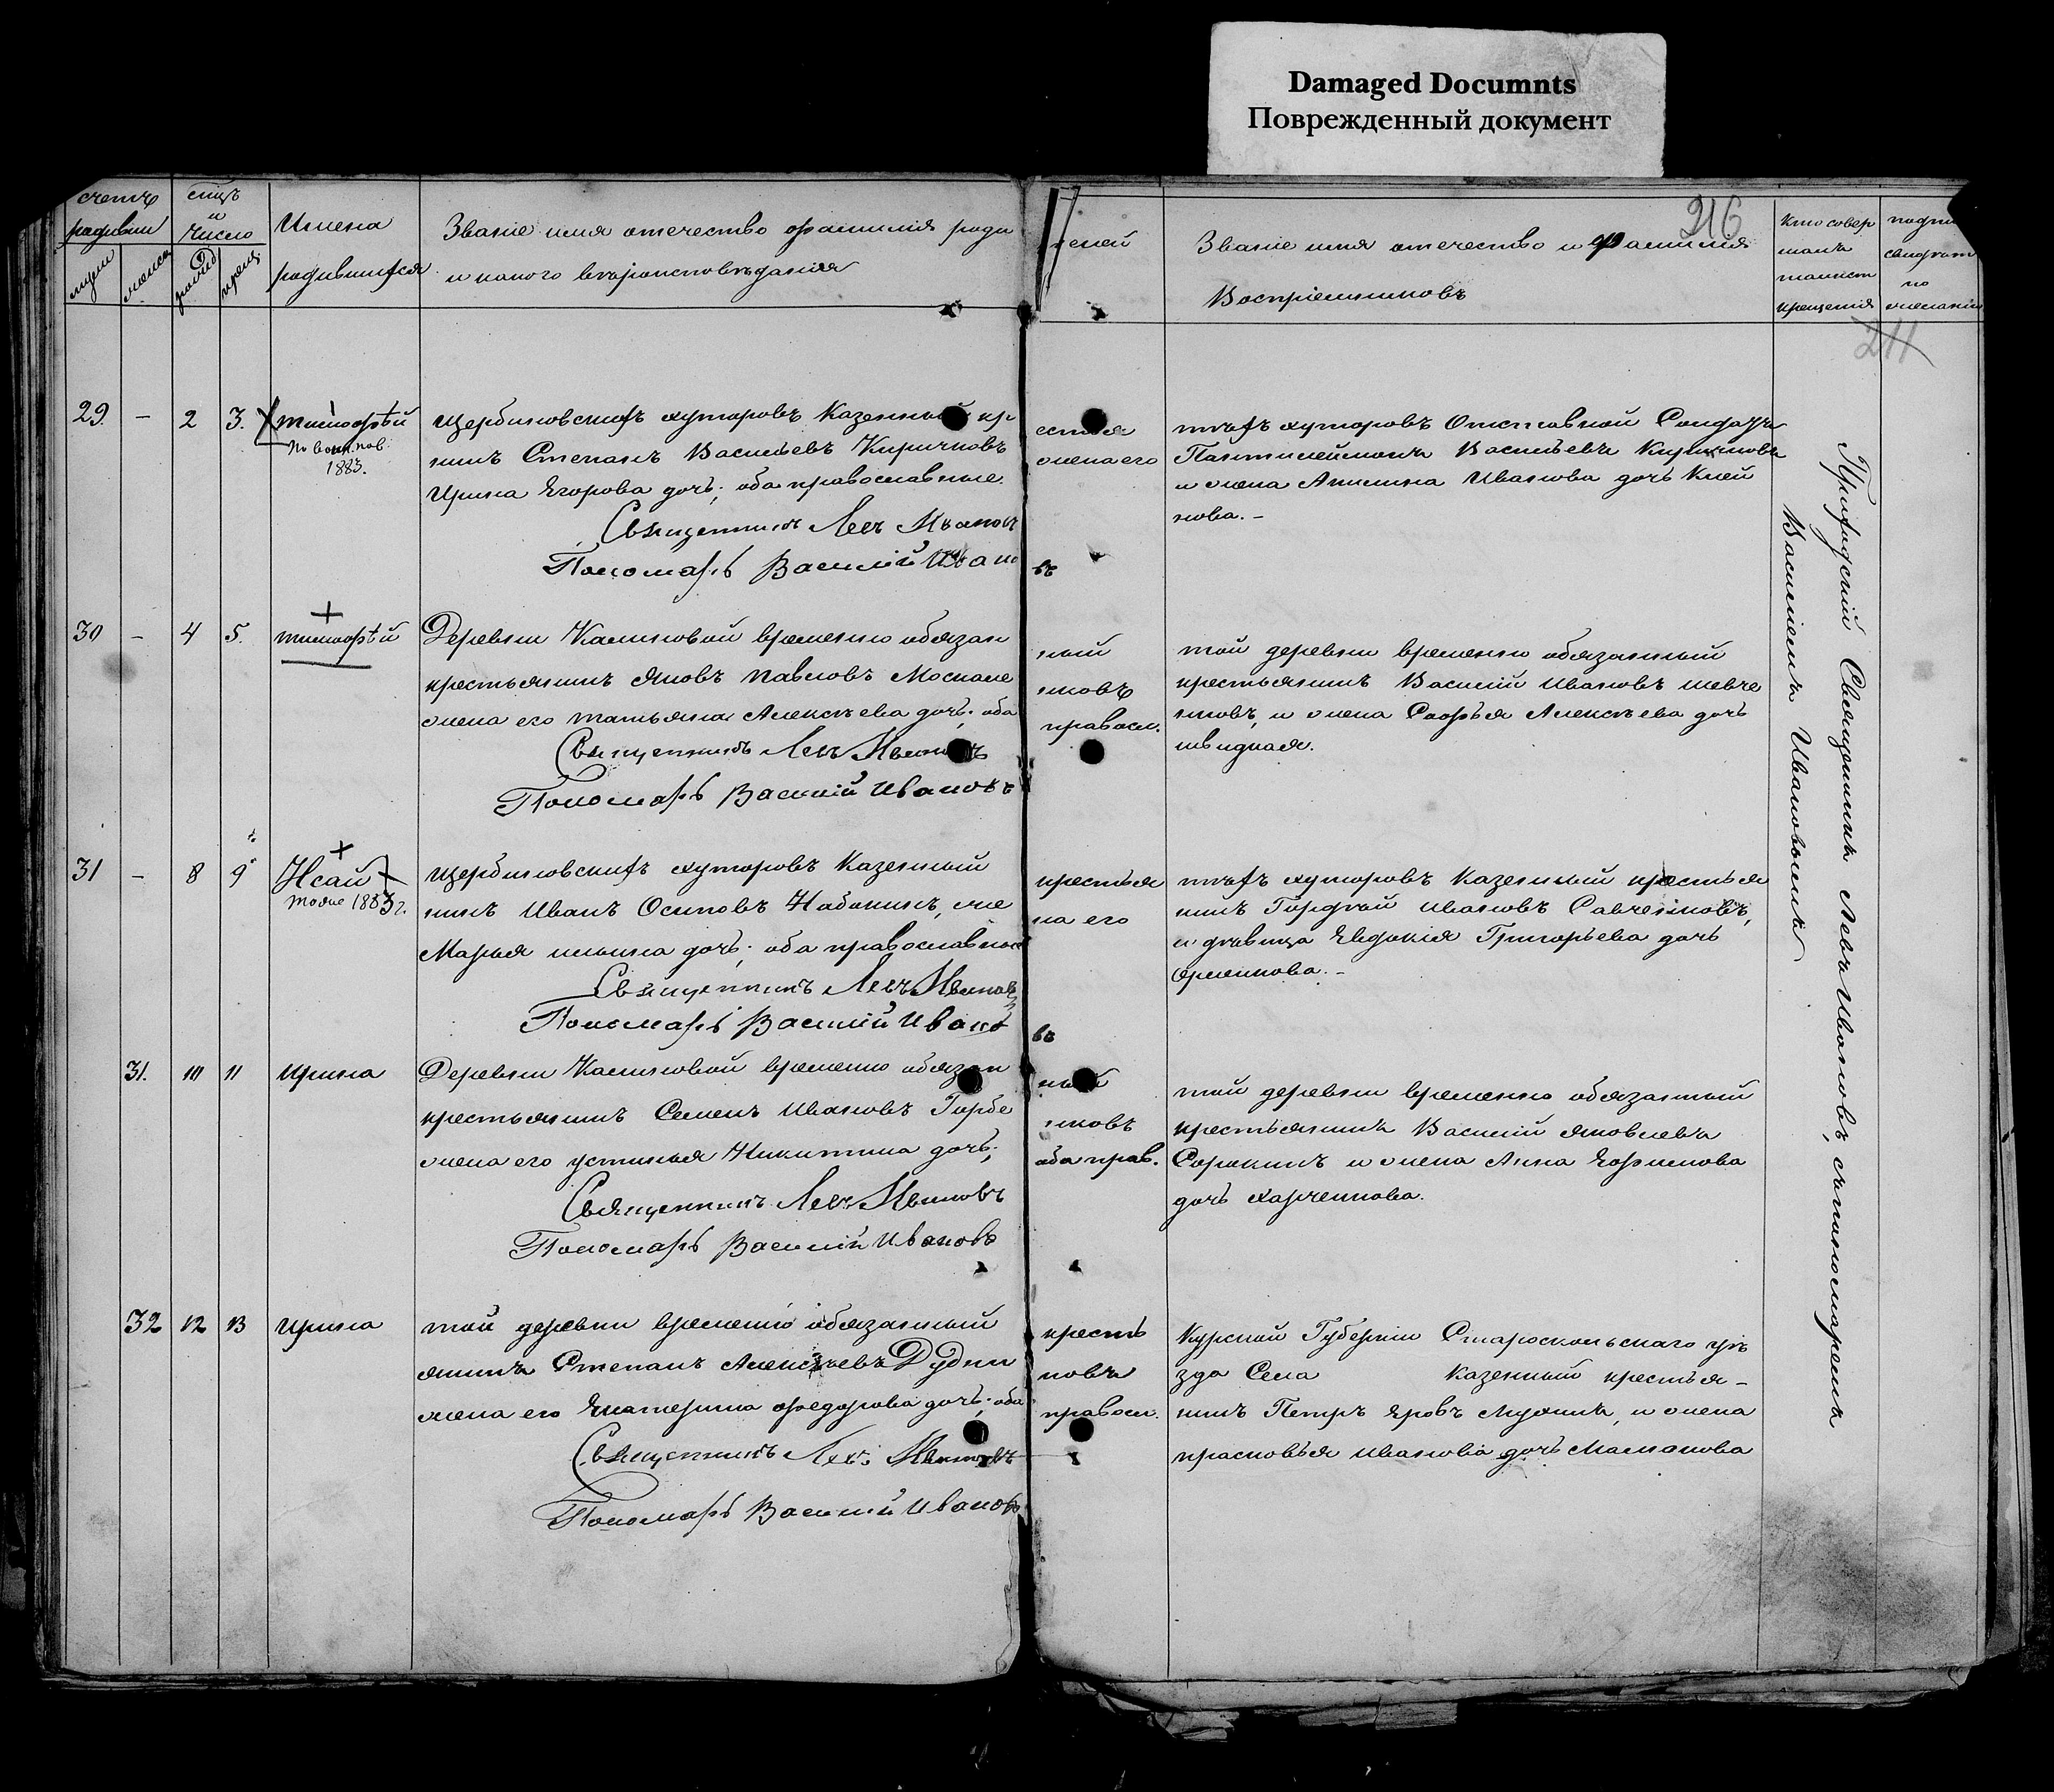 Damaged Documnts
Поврежденный документ
216
211
счетъ родивш
муж женск
мцъ и число
рожд крещ
Имена родившихся
Званіе имя отечество фамилія роди
телей
и какого вѣроисповѣданія
Званіе имя отечество и фамилія
Воспріемниковъ
Кто совер
шалъ
таинст
крещенія
свидѣт
по
желанію
29. – 2 3. тимофѣй
По воин. пов.
1883.
Щербиновскихъ хуторовъ Казенный кр
естья
нинъ Степанъ Васильевъ Киричковъ
жена его
Ирина Егорова дочь; оба православные.
Священникъ Левъ Ивановъ
Пономарь Василій Ивано
въ
тѣхъ хуторовъ Отставной Солдатъ
Пантилеймонъ Васильевъ
и жена Акилина Иванова дочь Клей
нова. –
30 – 4 5. тимофѣй
Деревни Калиновой временно обязан
ный
крестьянинъ Яковъ Павловъ Москале
нковъ
жена его татьяна Алексѣева дочь. оба
правосл.
Священникъ Левъ Ивановъ
Пономарь Василій Ивановъ
той деревни временно обязанный
крестьянинъ Василій Ивановъ шевче
нковъ, и жена Софья Алексѣева дочь
швидкая.
31 – 8 9 Исай
тоже 1883 г.
Щербиновскихъ хуторовъ Казенный
крестья
нинъ Иванъ Осиповъ Набокинъ, же
на его
Марья ильина дочь; оба православные
Священникъ Левъ Ивановъ
Пономарь Василій Ивано
въ
тѣхъ хуторовъ Казенный крестья
нинъ Гордѣй Ивановъ Савченковъ,
и дѣвица Евдокія Григорьева дочь
31. 10 11 Ирина
Деревни Калиновой временно обязан
ный
крестьянинъ Семенъ Ивановъ Горбе
нковъ
жена его устинья Никитина дочь;
оба прав.
Священникъ Левъ Ивановъ
Пономарь Василій Ивановъ
той деревни временно обязанный
крестьянинъ Василій яковлевъ
Сорокинъ и жена Анна Ефимова
дочь харченкова.
32 12 13 Ирина
той деревни временно обязанный
кресть
янинъ Степанъ Алексѣевъ Дудни
ковъ
жена его Екатерина федорова дочь; оба
правосл.
Священникъ Левъ Ивановъ
Пономарь Василій Ивановъ
Курской Губерніи Старооскольскаго уѣ
зда Села Казенный крестья–
нинъ Петръ и жена
прасковья иванова дочь Малахова
Священникъ Левъ Ивановъ, съ пономаремъ
Василіемъ Ивановымъ